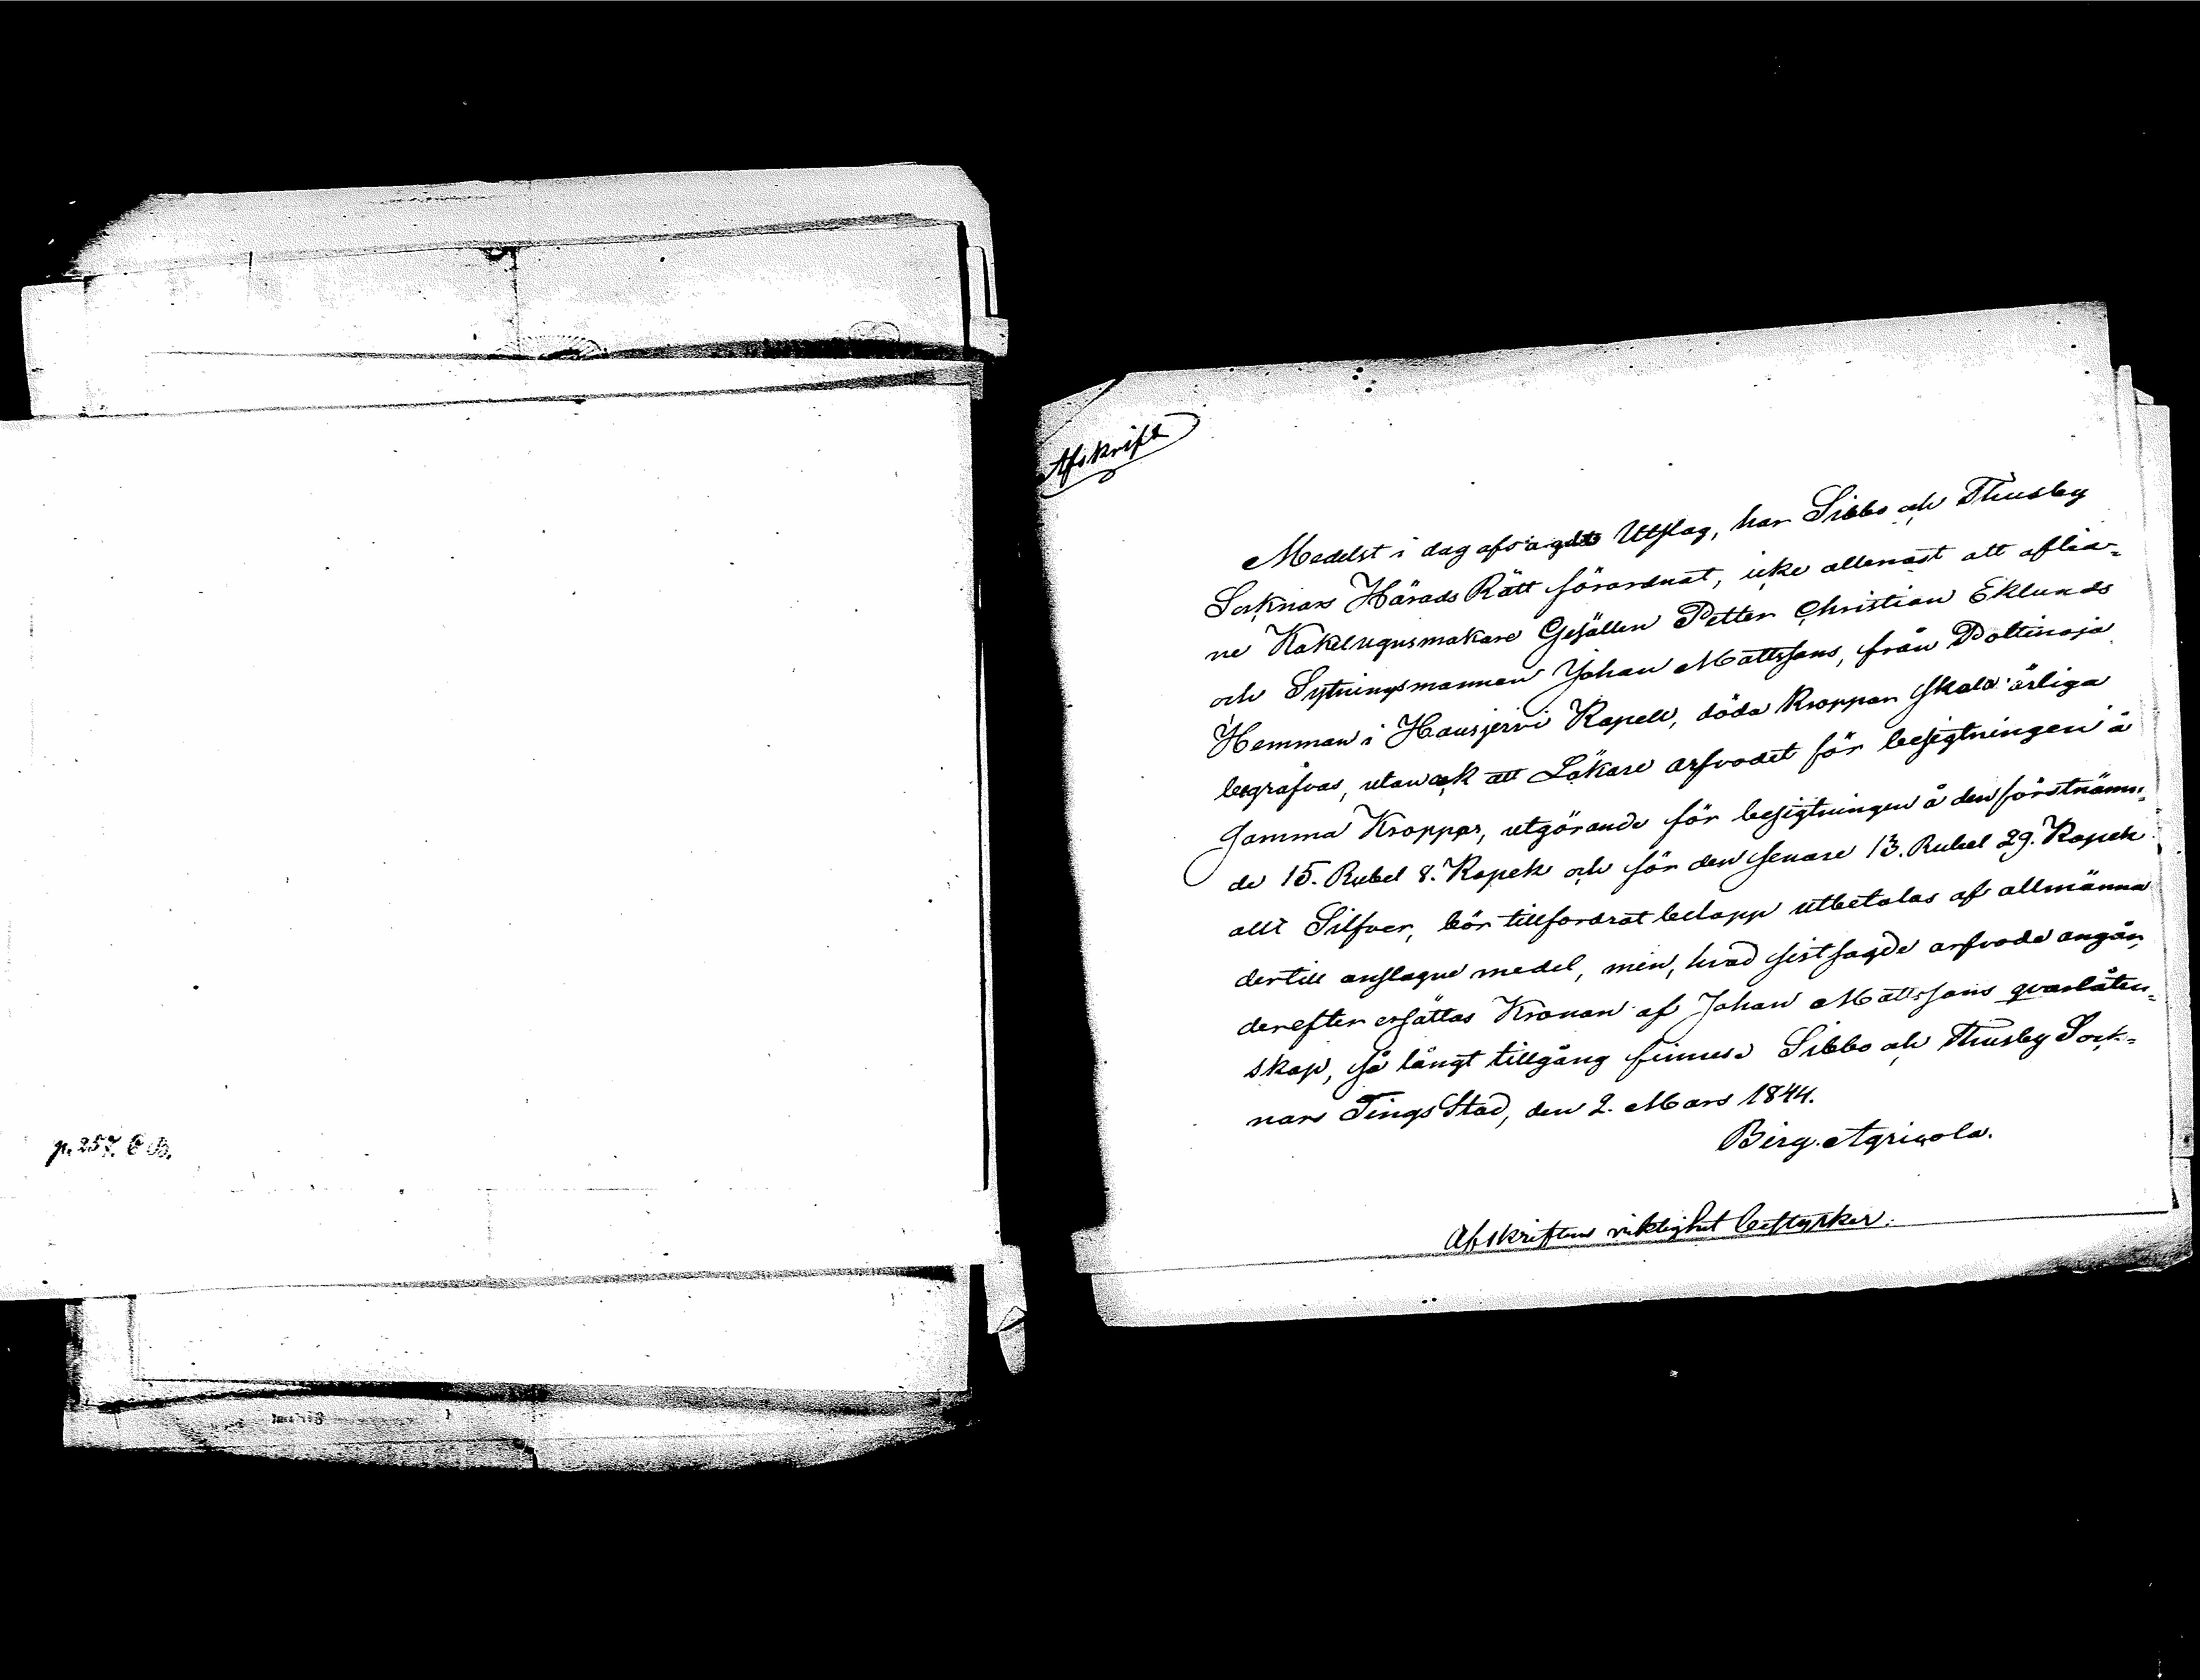 p. 257. C B.
Afskrift
Medelst i dag afsagdt Utslag, har Sibbo och Thusby
Socknars Härads Rätt förordnat, icke allenast att aflid-
ne Kakelugnsmakare Gesällen Petter Christian Eklunds
och Sytningsmannen Johan Mattssons, från Poltinoja
Hemman i Hausjervi Kapell, döda kroppar skola ärliga
begrafvas, utan ock att Läkare arfvodet för besigtningen å
samma Kroppar, utgörande för besigtningen å den förstnämn-
de 15. Rubel 8. Kopek och för den senare 13. Rubel 29. Kopek
allt Silfver, bör tillfordrat belopp utbetalas af allmänna
dertill anslagne medel, men, hvad sistsagde arfvode angår,
derefter ersättas Kronan af Johan Mattssons qvarlåten-
skap, så långt tillgång finnes. Sibbo och Thusby Sock-
nars Tings Stad, den 2. Mars 1844.
Birg. Agricola.
Afskriftens riktighet bestyrker: